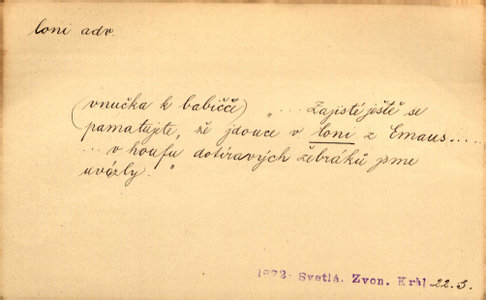 loni adv.
(vnučka k babičče) „....Zajisté ještě se
pamatujte, že jdouce v loni z Emaus.....
... v houfu dotíravých žebráků jsme
uvázly."
1872. Svetlá. Zvon. Král. 22.3.